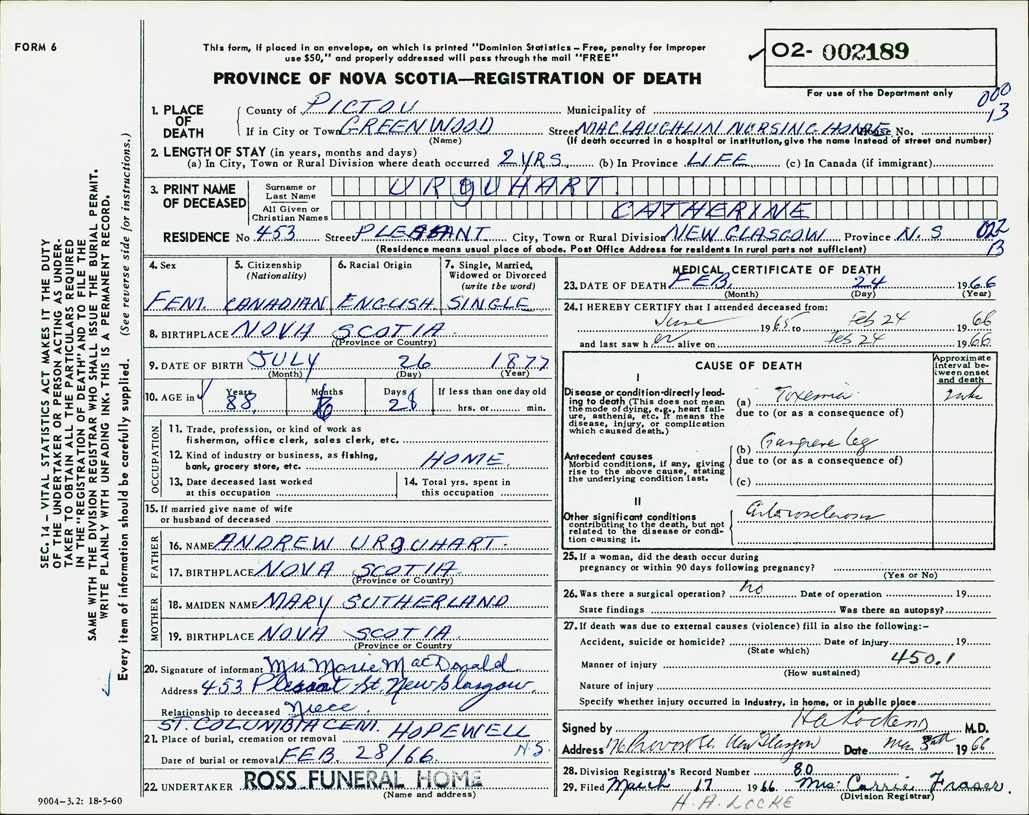 FORM 6
This form, if placed in an envelope, on which is printed "Dominion Statistics – Free, penalty for improper
use $50," and properly addressed will pass through the mail "FREE"
PROVINCE OF NOVA SCOTIA—REGISTRATION OF DEATH
✓ 02- 002189
For use of the Department only
000
13
1. PLACE OF DEATH
County of PICTOU Municipality of
If in City or Town GREENWOOD Street MACLAUGHLIN NURSING HOME House No.
(Name) (If death occurred in a hospital or institution, give the name instead of street and number)
2. LENGTH OF STAY (in years, months and days)
(a) In City, Town or Rural Division where death occurred 2 YRS. (b) In Province LIFE (c) In Canada (if immigrant)
3. PRINT NAME OF DECEASED
Surname or Last Name URQUHART
All Given or Christian Names CATHERINE
RESIDENCE No 453 Street PLEASANT City, Town or Rural Division NEW GLASGOW Province N. S
002
13
(Residence means usual place of abode. Post Office Address for residents in rural parts not sufficient)
4. Sex 5. Citizenship (Nationality) 6. Racial Origin 7. Single, Married, Widowed or Divorced (write the word)
FEM. CANADIAN ENGLISH SINGLE
8. BIRTHPLACE NOVA SCOTIA
(Province or Country)
9. DATE OF BIRTH JULY 26 1877
(Month) (Day) (Year)
10. AGE in ✓ Years Months Days If less than one day old
88 6 28 hrs. or min.
OCCUPATION
11. Trade, profession, or kind of work as
fisherman, office clerk, sales clerk, etc.
12. Kind of industry or business, as fishing,
bank, grocery store, etc. HOME.
13. Date deceased last worked
at this occupation
14. Total yrs. spent in
this occupation
15. If married give name of wife
or husband of deceased
FATHER
16. NAME ANDREW URQUHART.
17. BIRTHPLACE NOVA SCOTIA
(Province or Country)
MOTHER
18. MAIDEN NAME MARY SUTHERLAND
19. BIRTHPLACE NOVA SCOTIA.
(Province or Country)
20. Signature of informant Mrs Marie MacDonald
Address 453 Pleasant St. New Glasgow.
Relationship to deceased Niece.
ST. COLUMBIA CEM. HOPEWELL
21. Place of burial, cremation or removal N.S.
Date of burial or removal FEB. 28/66.
22. UNDERTAKER ROSS FUNERAL HOME
(Name and address)
MEDICAL CERTIFICATE OF DEATH
23. DATE OF DEATH FEB. 24 1966
(Month) (Day) (Year)
24. I HEREBY CERTIFY that I attended deceased from:
June 1965 to Feb 24 1966
and last saw her alive on Feb 24 1966
CAUSE OF DEATH
Approximate interval between onset and death
I
Disease or condition directly leading to death (This does not mean the mode of dying, e.g., heart failure, asthenia, etc. It means the disease, injury, or complication which caused death.)
(a) Toxemia
due to (or as a consequence of)
Antecedent causes
Morbid conditions, if any, giving rise to the above cause, stating the underlying condition last.
(b) Gangrene leg
due to (or as a consequence of)
(c)
II
Other significant conditions
contributing to the death, but not related to the disease or condition causing it.
25. If a woman, did the death occur during
pregnancy or within 90 days following pregnancy?
(Yes or No)
26. Was there a surgical operation? no Date of operation 19
State findings Was there an autopsy?
27. If death was due to external causes (violence) fill in also the following:-
Accident, suicide or homicide? Date of injury 19
(State which)
450.1
Manner of injury
(How sustained)
Nature of injury
Specify whether injury occurred in industry, in home, or in public place
Signed by M.D.
Address New Glasgow Date 1966
28. Division Registrar's Record Number 80
29. Filed March 17 1966 Mrs Carrie Fraser.
(Division Registrar)
H. A. LOCKE
9004–3.2: 18-5-60
SEC. 14 – VITAL STATISTICS ACT MAKES IT THE DUTY
OF THE UNDERTAKER OR PERSON ACTING AS UNDER-
TAKER TO OBTAIN ALL THE PARTICULARS REQUIRED
IN THE "REGISTRATION OF DEATH" AND TO FILE THE
SAME WITH THE DIVISION REGISTRAR WHO SHALL ISSUE THE BURIAL PERMIT.
WRITE PLAINLY WITH UNFADING INK. THIS IS A PERMANENT RECORD.
Every item of information should be carefully supplied. (See reverse side for instructions.)